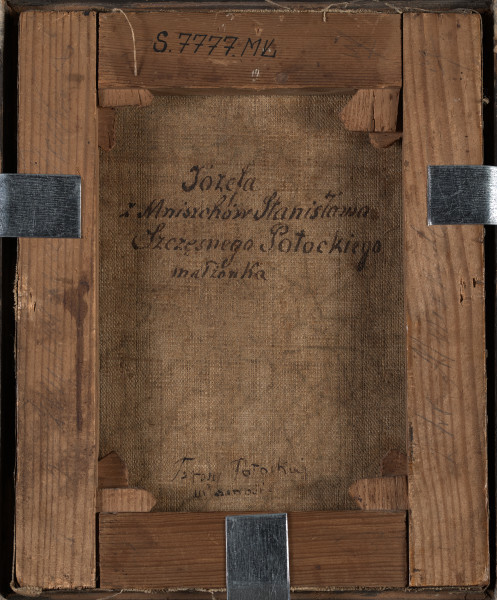 S.7777.MŁ
Józefa
z Mniszchów Stanisława
Szczęsnego Potockiego
małżonka
Potockiej